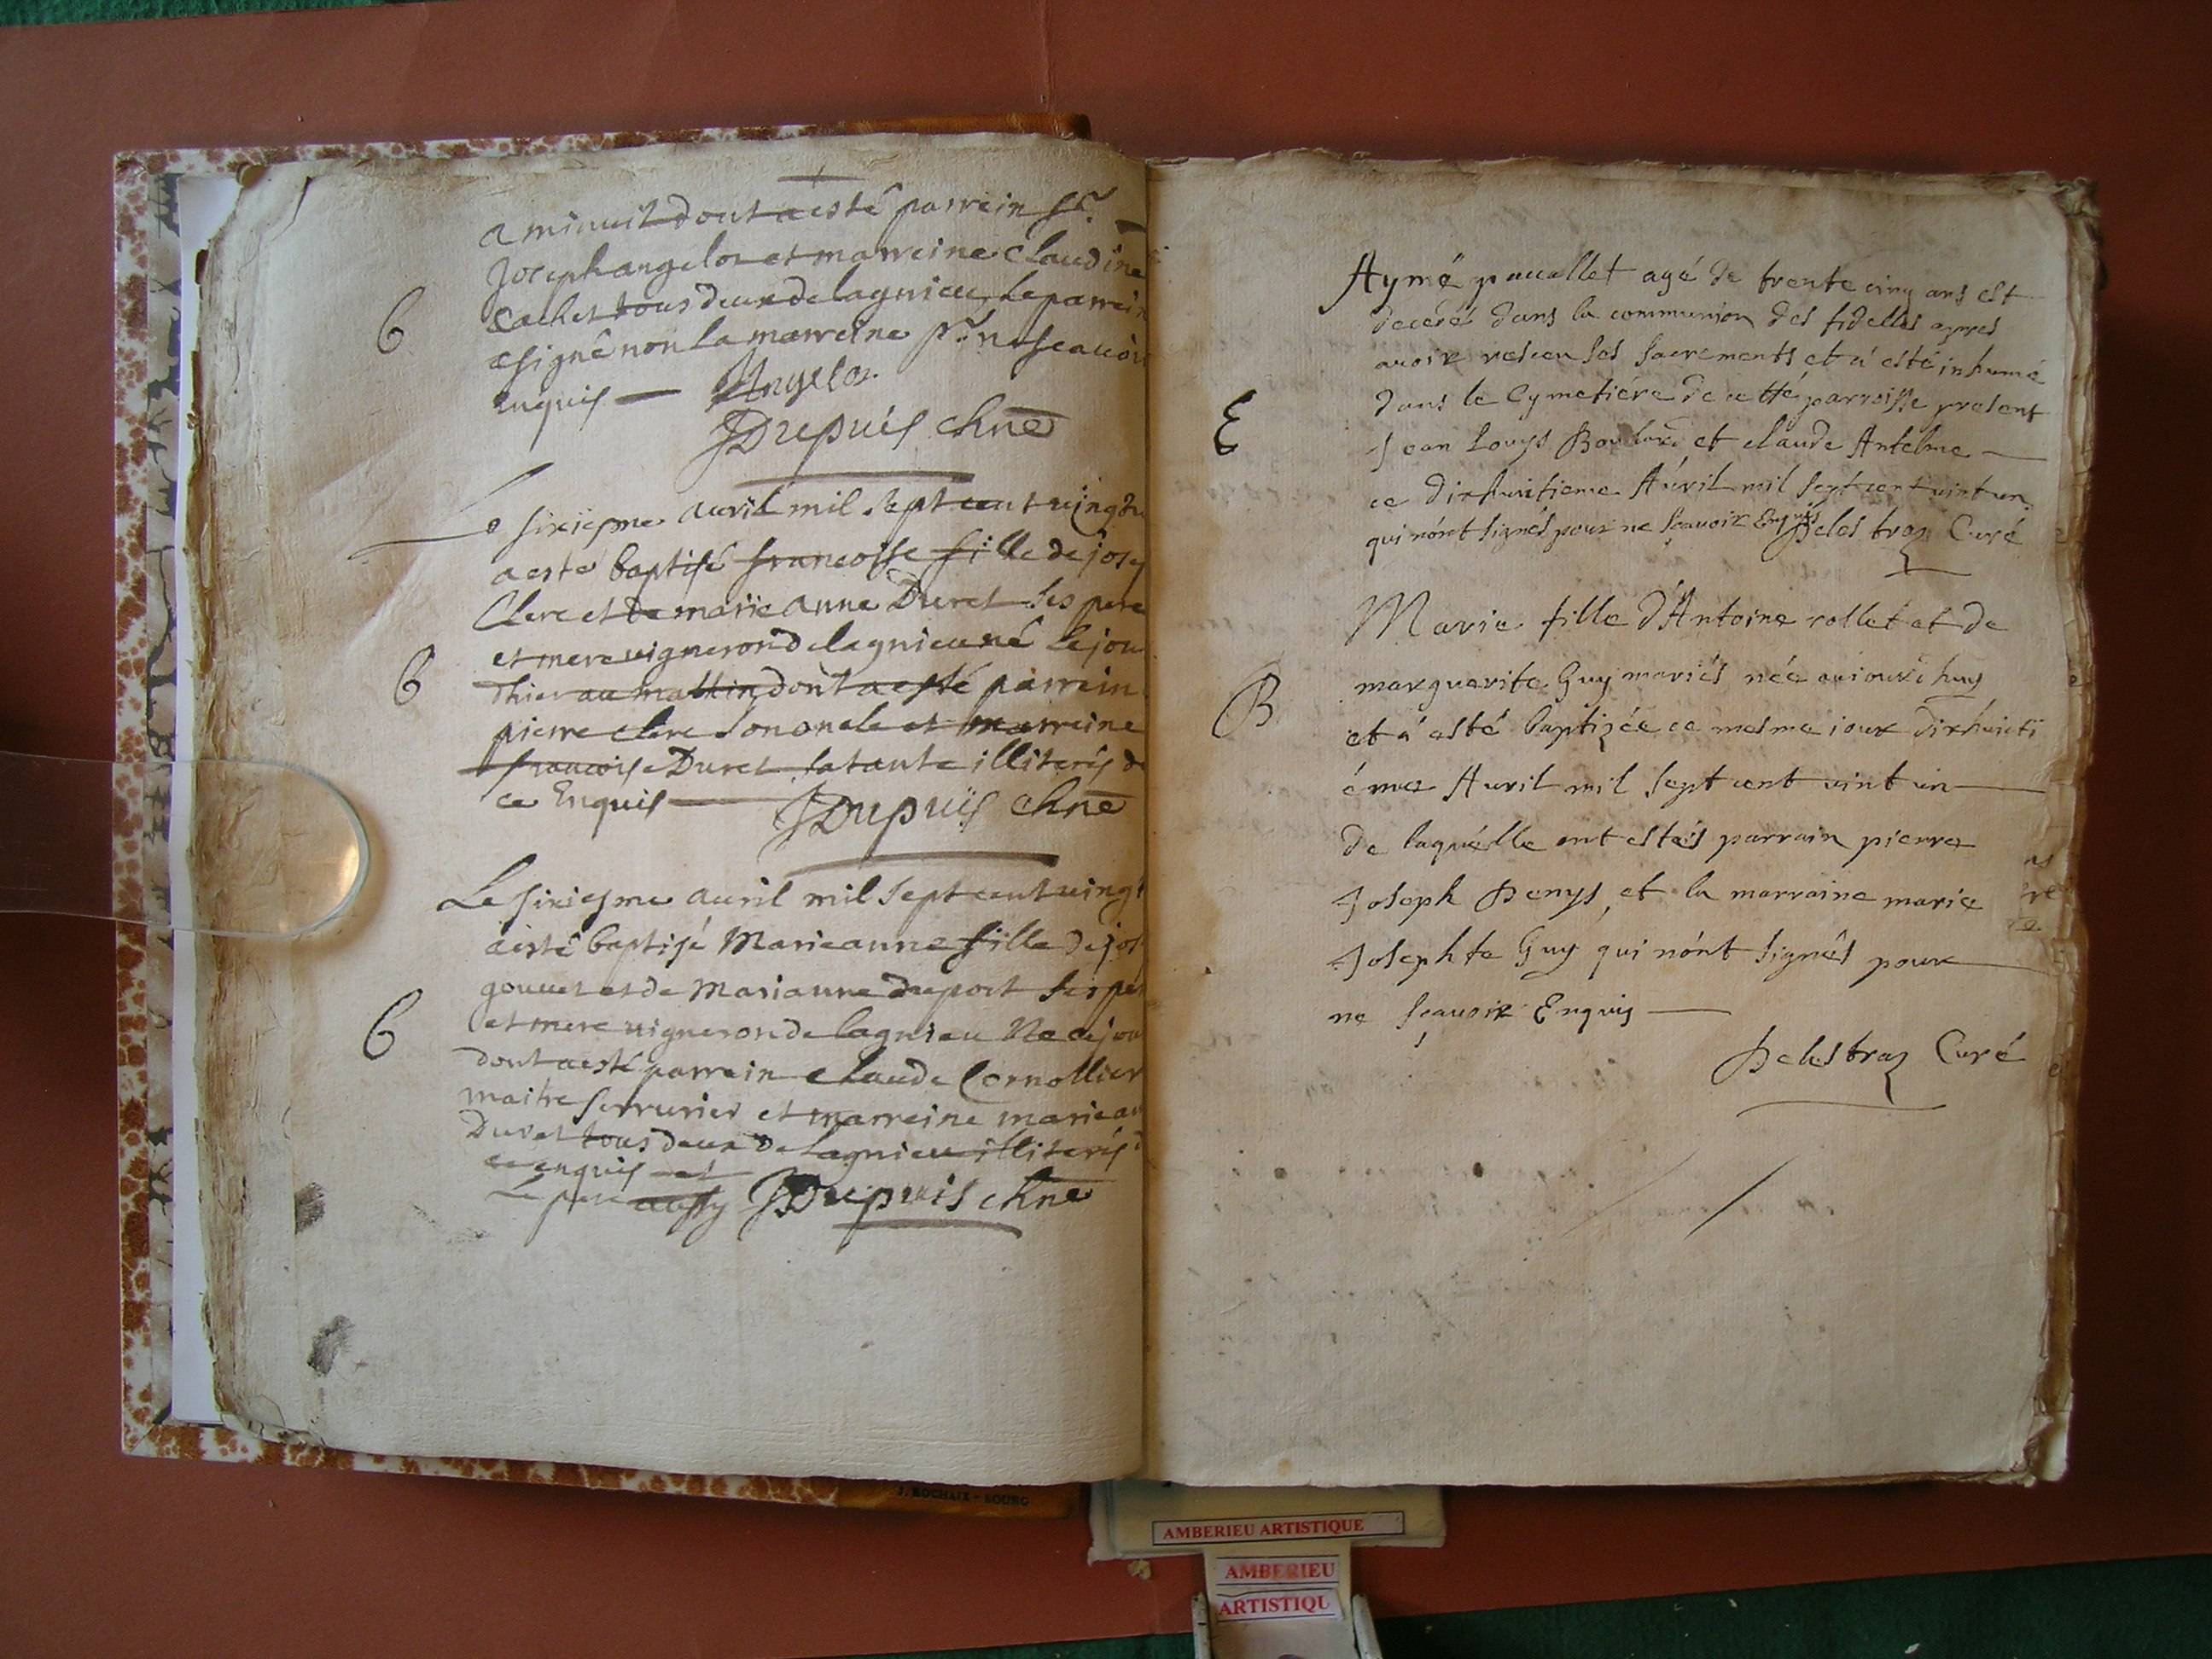 a minuit dont a esté parrein Sr.
Joseph angelot et marreine Claudine
Cachet tous deux de lagnieu, Le parrein
B
a signé non La marreine pr. ne scauoir
enquis — Angelot
JDupuis chne
Le sixiesme auril mil sept cent uingt u
a esté baptisé francoisse fille de josep
Clerc et de marie anne Duret ses pere
et mere uigneron de lagnieu né Le jou
B
d'hier au mattin dont a esté parrein
pierre clerc son oncle et marreine
francoise Duret sa tante illiterés de
ce Enquis — JDupuis chne
Le sixiesme auril mil sept cent uingt
a esté baptisé Marieanne fille de jos
gouuet et de Marianne duport ses per
B
et mere uigneron de lagnieu Né ce jou
dont a esté parrein claude Cornollier
maitre serrurier et marreine marie an
Duret tous deux de Lagnieu illiterés d
ce enquis et
Le pere aussy JDupuis chne
Aymé pauallet agé de trente cinq ans est
decedé dans la communion des fidelles apres
auoir reseu ses sacrements et a esté inhumé
dans le Cymetiére de cette parroisse present
E
Jean Louys et claude Antelme —
ce dixhuitieme Auril mil sept cent uint un
qui n'ont signés pour ne sçauoir Enquis Delestraz Curé
Marie fille d'Antoine rollet et de
marguerite Guy mariés née auiourdhuy
B
et a esté baptizée ce mesme iour dixhuiti
éme Auril mil sept cent uint un —
de laquelle ont estés parrain pierre
Joseph Denys, et la marraine marie
Josephte Guy qui n'ont signés pour —
ne sçauoir Enquis —
Delestraz Curé
J. ROCHAIX - BOURG
AMBERIEU ARTISTIQUE
AMBERIEU
ARTISTIQU